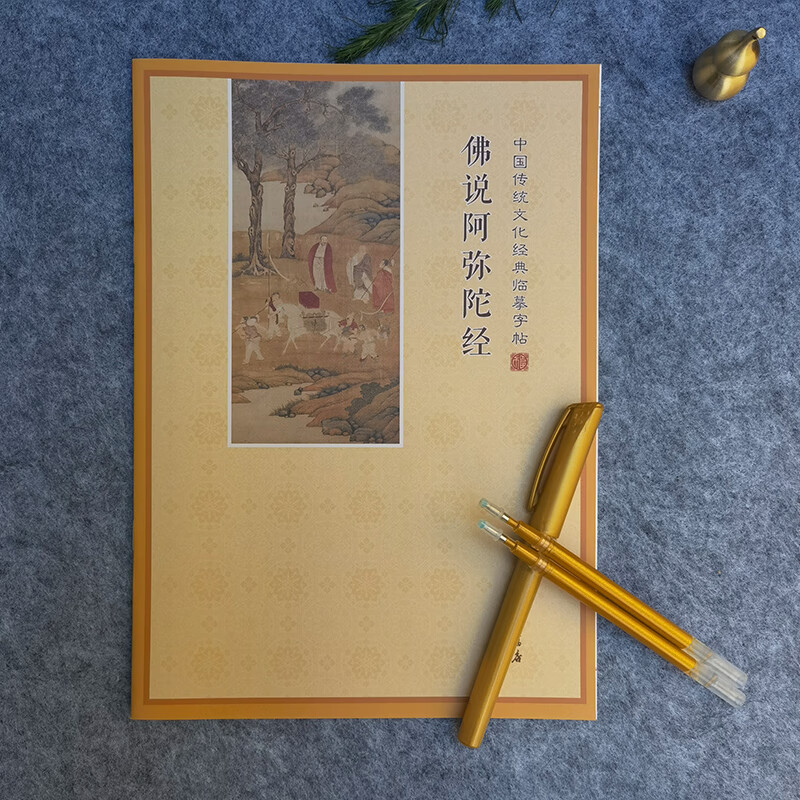 中国传统文化经典临摹字帖
佛说阿弥陀经